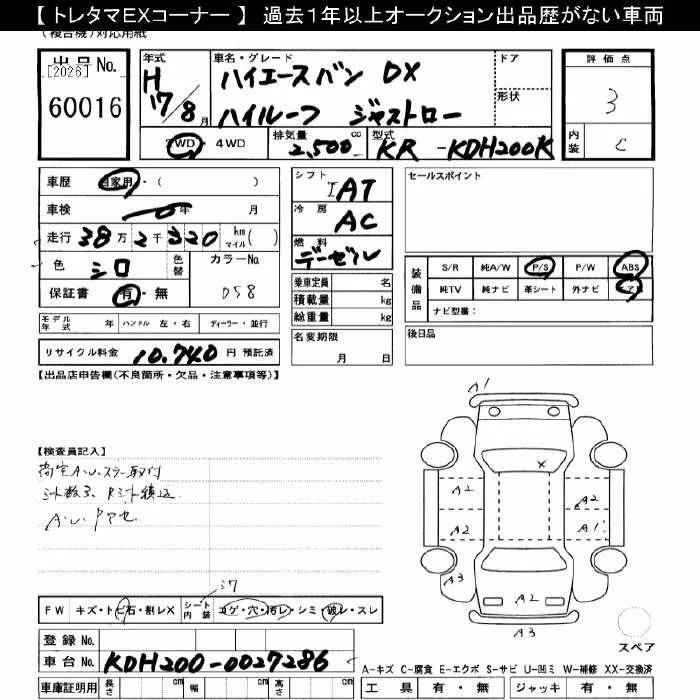 【 トレタマEXコーナー 】 過去１年以上オークション出品歴がない車両
（複合機）対応用紙
出品No.
[2026]
60016
年式
H
17/8月
車名・グレード
ハイエースバン DX
ハイルーフ ジャストロー
ドア
形状
評価点
3
内装
C
2WD ・ 4WD
排気量
2,500 cc
型式
KR -KDH200K
車歴 自家用・( )
車検 年 月
走行 38万2千320 km マイル( )
色 シロ
色替
カラーNo.
058
保証書 有・無
シフト
IAT
冷房
AC
燃料
デーゼル
乗車定員 名
積載量 kg
総重量 kg
名変期限
月 日
セールスポイント
装備品
S/R 純A/W P/S P/W ABS
純TV 純ナビ 革シート 外ナビ エアB
ナビ型番：
後日品
モデル年式 年 ハンドル 左・右 ディーラー・並行
リサイクル料金 10,740 円 預託済
【出品店申告欄(不良箇所・欠品・注意事項等)】
【検査員記入】
A1
X
A2
A2
A2
A1
A3
A2
A3
スペア
シワ
FW キズ・トビ石・割レX
シート内装 コゲ・穴・汚レ・シミ・破レ・スレ
登録 No.
車台 No. KDH200-0027286
車庫証明用 長さ cm 幅 cm 高さ cm
A-キズ C-腐食 E-エクボ S-サビ U-凹ミ W-補修 XX-交換済
工具 有・無 ジャッキ 有・無